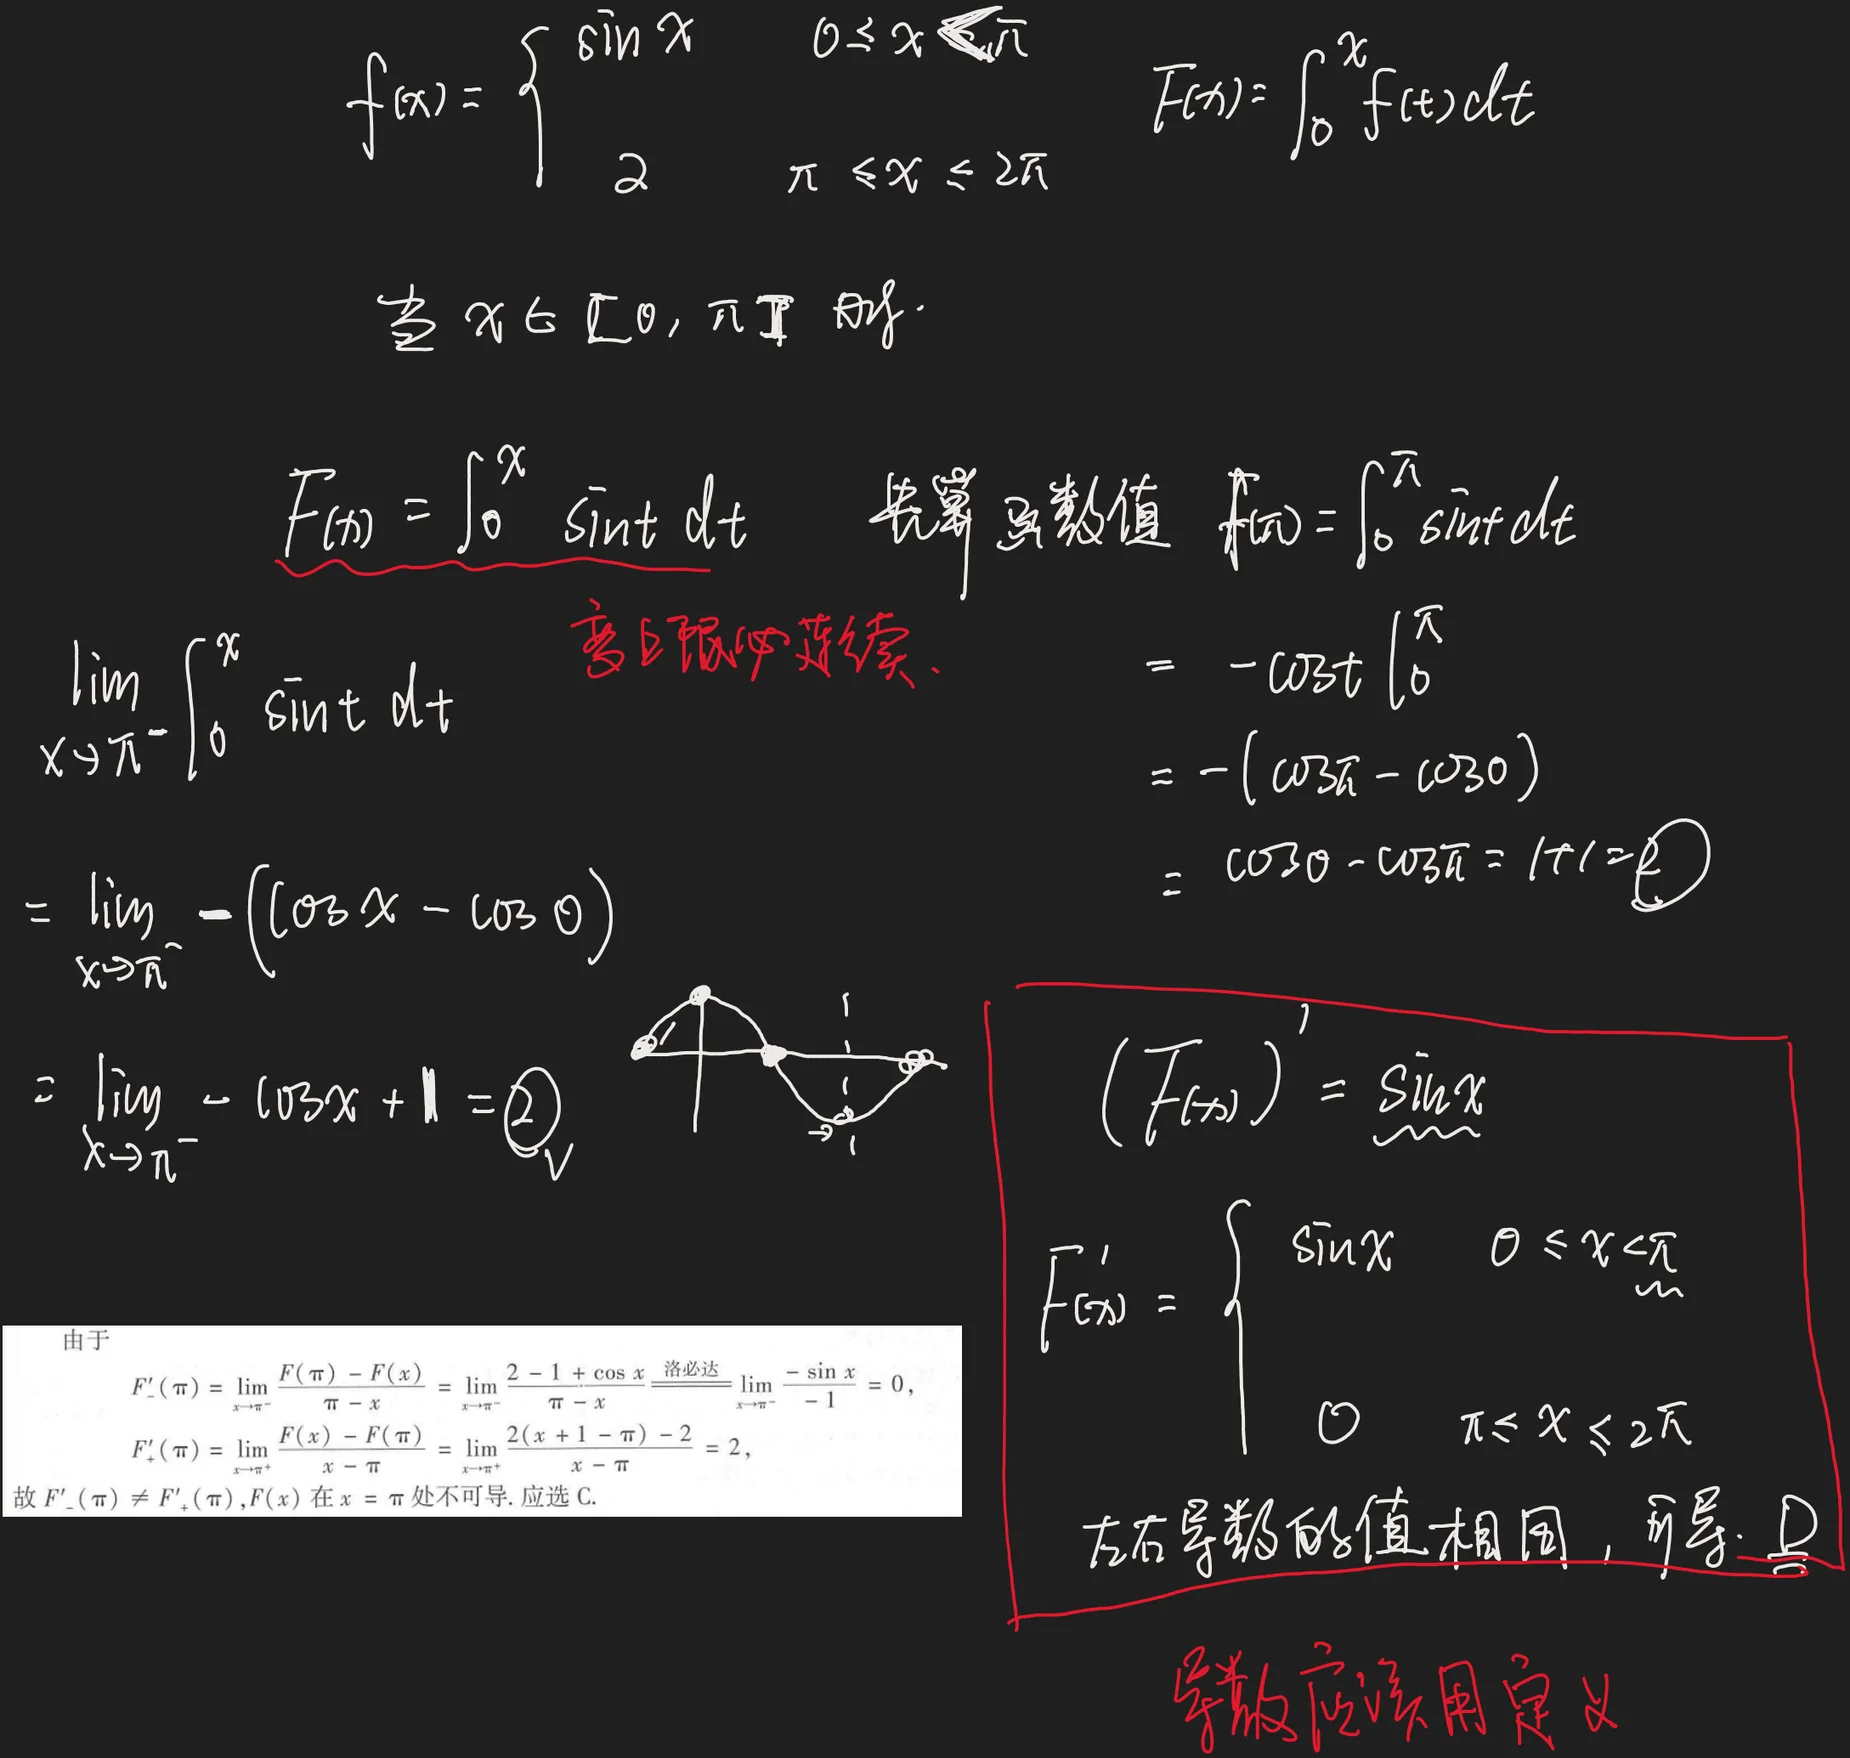 f(x) = { sin x 0 ≤ x < π
2 π ≤ x ≤ 2π
F(x) = ∫₀ˣ f(t)dt
当 x ∈ [0, π] 时.
F(x) = ∫₀ˣ sint dt
变上限必连续.
lim x→π⁻ ∫₀ˣ sint dt
= lim x→π⁻ -(cosx - cos0)
= lim x→π⁻ - cosx + 1 = 2
函数值 F(π) = ∫₀^π sint dt
= -cost |₀^π
= -(cosπ - cos0)
= cos0 - cosπ = 1+1 = 2
(F(x))' = sinx
F'(x) = { sinx 0 ≤ x < π
0 π ≤ x ≤ 2π
左右导数的值相同, 可导. D
导数应该用定义
由于
F′₋(π) = lim x→π⁻ (F(π) − F(x))/(π − x) = lim x→π⁻ (2 − 1 + cos x)/(π − x) 洛必达 lim x→π⁻ (− sin x)/(− 1) = 0,
F′₊(π) = lim x→π⁺ (F(x) − F(π))/(x − π) = lim x→π⁺ (2(x + 1 − π) − 2)/(x − π) = 2,
故 F′₋(π) ≠ F′₊(π), F(x) 在 x = π 处不可导. 应选 C.